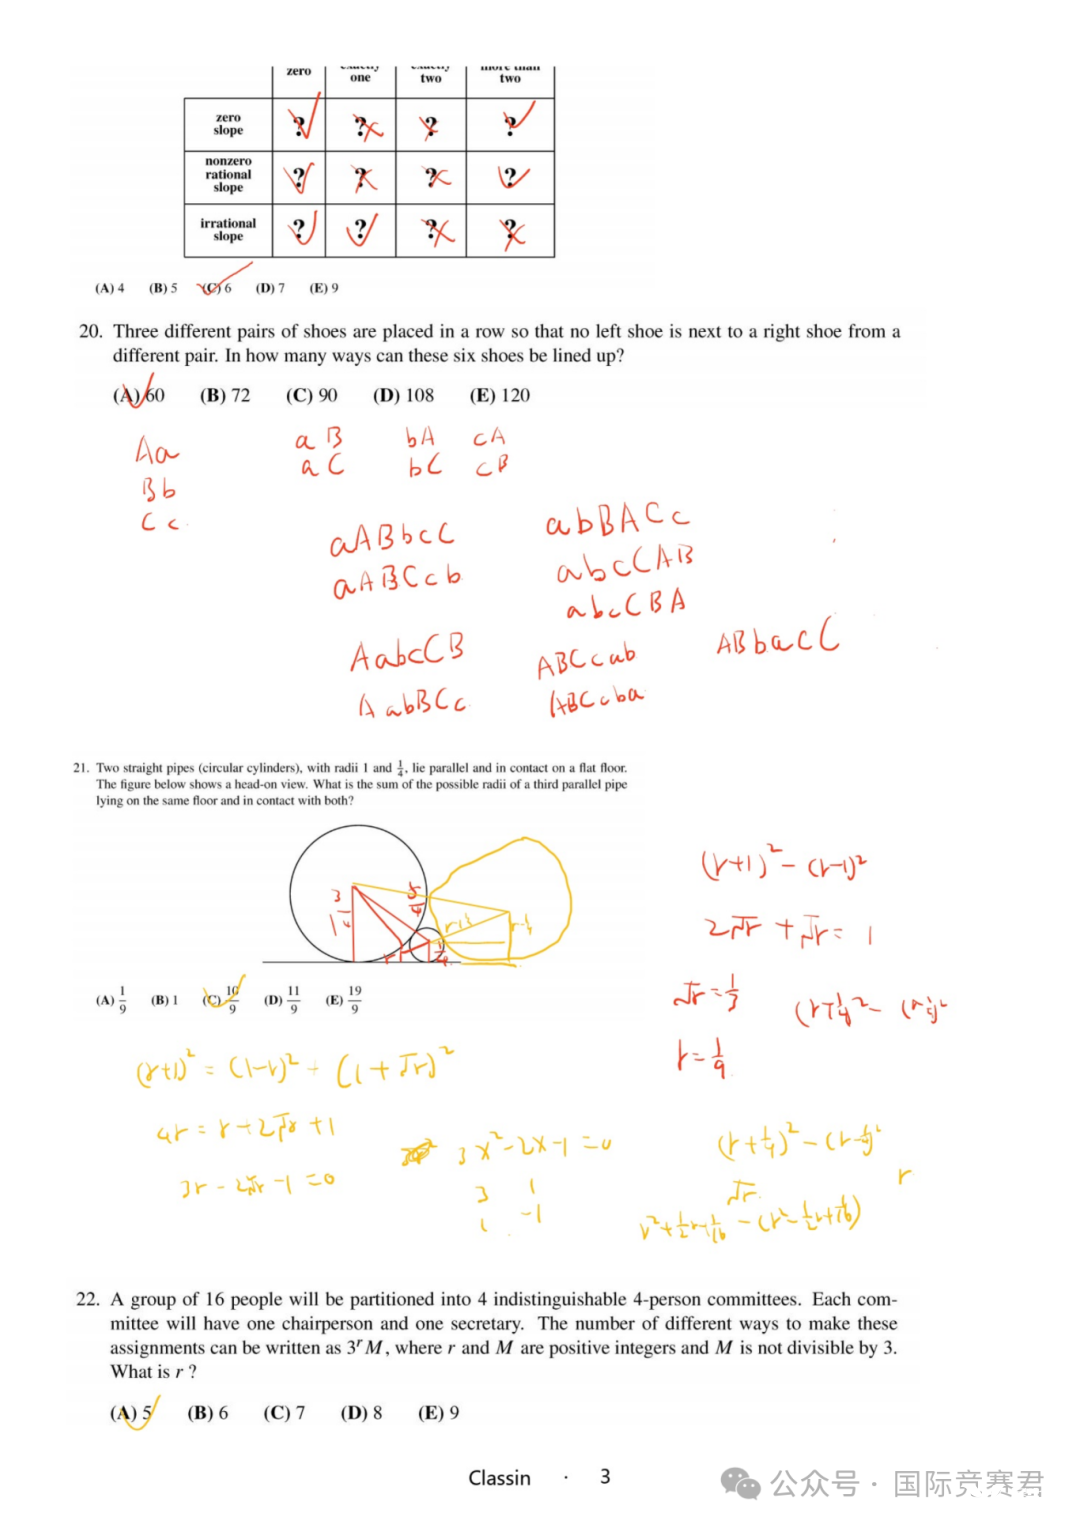 zero one two two
zero slope ? ? ? ?
nonzero rational slope ? ? ? ?
irrational slope ? ? ? ?
(A) 4 (B) 5 (C) 6 (D) 7 (E) 9
20. Three different pairs of shoes are placed in a row so that no left shoe is next to a right shoe from a
different pair. In how many ways can these six shoes be lined up?
(A) 60 (B) 72 (C) 90 (D) 108 (E) 120
Aa
Bb
Cc
aB bA cA
aC bC cB
aABbcC
aABCcb
abBACc
abcCAB
abcCBA
AabcCB
AabBCc
ABCcab
ABCcba
ABbacC
21. Two straight pipes (circular cylinders), with radii 1 and 1/4, lie parallel and in contact on a flat floor.
The figure below shows a head-on view. What is the sum of the possible radii of a third parallel pipe
lying on the same floor and in contact with both?
(r+1)² - (r-1)²
2√r + √r = 1
√r = 1/3
r = 1/9
(A) 1/9 (B) 1 (C) 10/9 (D) 11/9 (E) 19/9
(r+1)² = (1-r)² + (1+√r)²
4r = r+2√r+1
3r - 2√r - 1 = 0
3x²-2x-1=0
3 1
1 -1
(r+1/4)² - (r-1/4)²
√r
r
r²+1/2r+1/16 - (r²-1/2r+1/16)
22. A group of 16 people will be partitioned into 4 indistinguishable 4-person committees. Each com-
mittee will have one chairperson and one secretary. The number of different ways to make these
assignments can be written as 3^r M, where r and M are positive integers and M is not divisible by 3.
What is r ?
(A) 5 (B) 6 (C) 7 (D) 8 (E) 9
Classin · 3
公众号 · 国际竞赛君